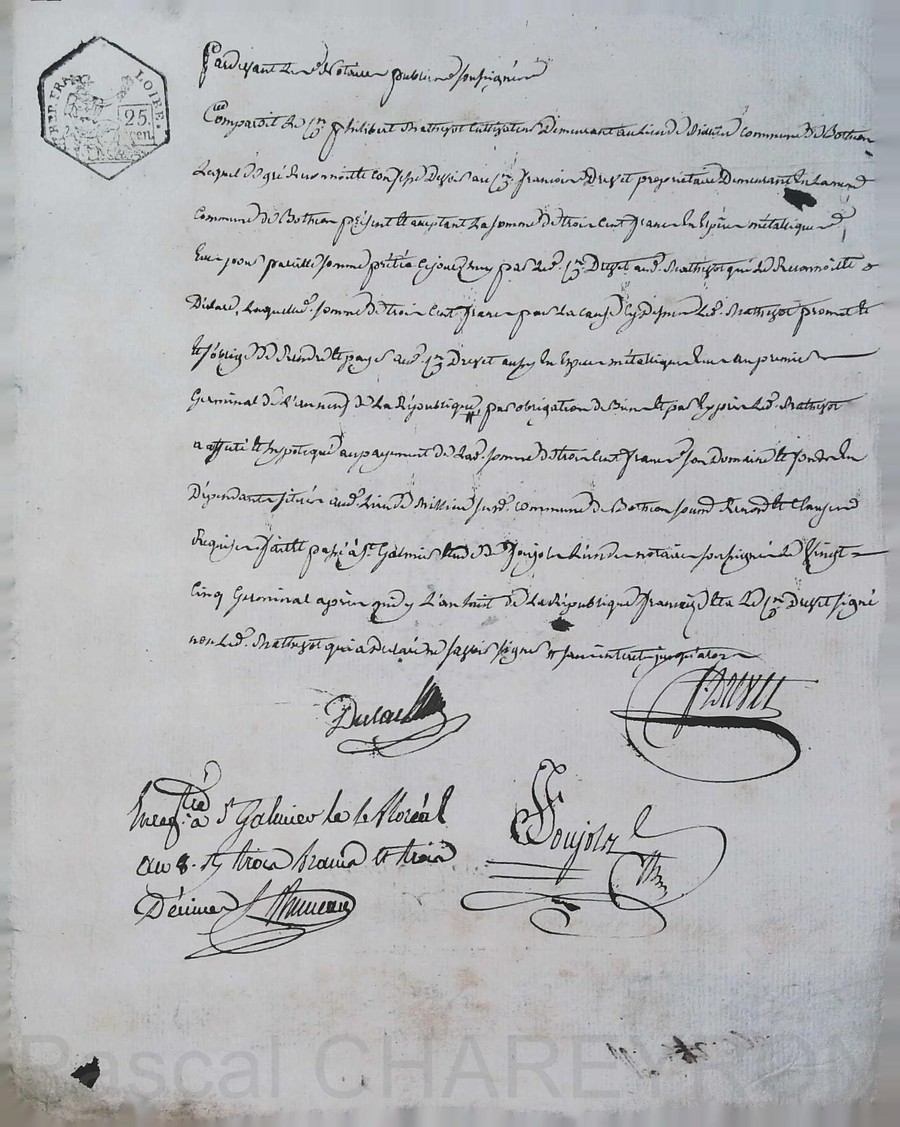 REP. FRA. LOIRE.
25. cen.
Pardevant Les Notaires publics soussignés
Comparait Le Cn philibert Mathevot Cultivateur Demeurant au lieu de commune de Bothéon
Lequel de gré Reconnoit et Confesse Devoir au Cn françois Drevet propriétaire Demeurant
Commune de Bothéon présent et acceptant La somme de trois Cent francs En Espèces métalliques
pour pareille somme prêtée ce jourd'huy par Led. Cn Drevet aud. Mathevot qui Le Reconnoit et
Déclare, Laquelle d. somme de trois Cent francs par La cause Cy dessus Led. Mathevot promet et
et s'oblige de Rendre et payer aud. Cn Drevet aussy En Espèces métalliques au premier
Germinal de l'an neuf de La République, par obligation de Biens et par Exprès Led. Mathevot
a affecté et hypotéqué au payement de Lad. somme de trois Cent francs son Domaine et fonds En
Dépendants situés aud. Lieu de susd. commune de Bothéon soumis. Renond. et Clauses
Requises fait et passé à St Galmier Etude de Poujol L'un des notaires soussignés Le Vingt-
Cinq Germinal après midy L'an huit de La République française Et a Led. Cn Drevet signé
non Led. Mathevot qui a déclaré ne savoir signer # sans interet jusqu'alors
Dulac
Drevet
Enregtré à St Galmier le 1e floréal
an 8. Rç trois francs et trois
Décimes
Poujol
Pascal CHAREYRON